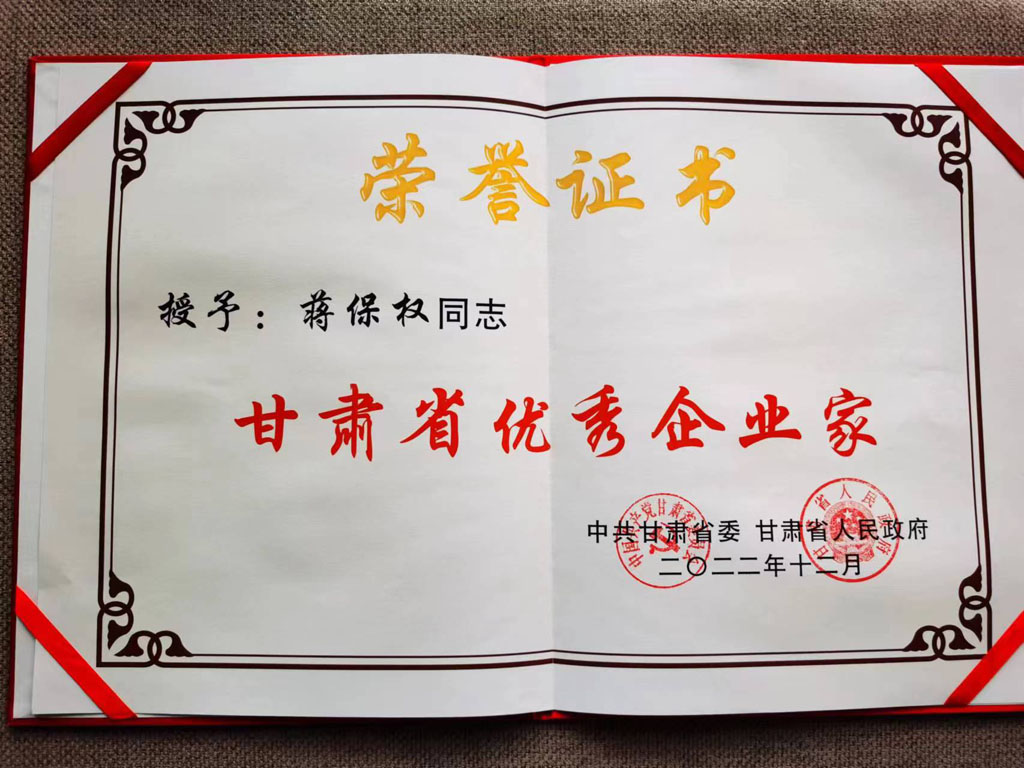 荣誉证书
授予：蒋保权同志
甘肃省优秀企业家
中共甘肃省委 甘肃省人民政府
二〇二二年十二月
中国共产党甘肃省委员会
甘肃省人民政府